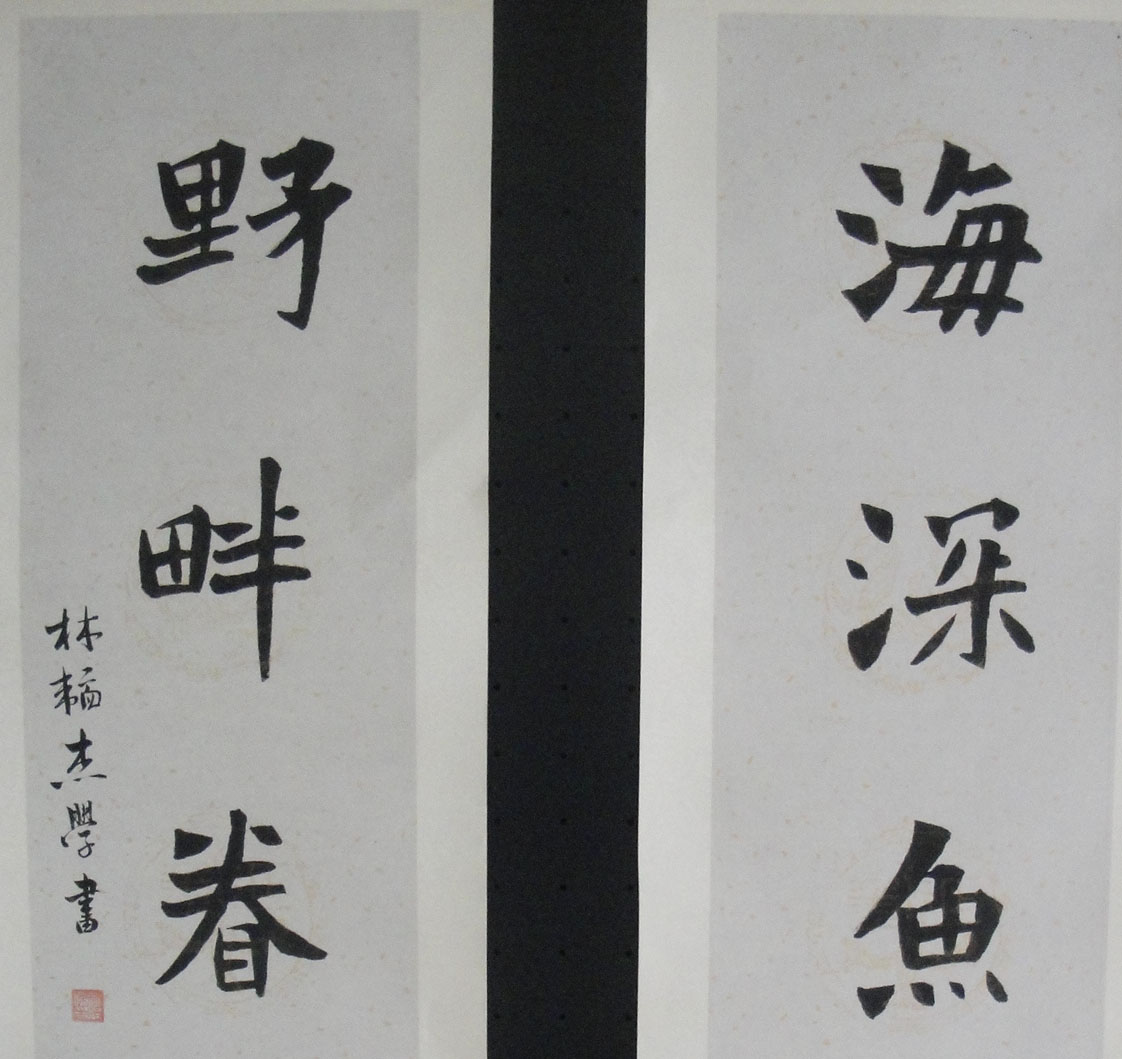 海深魚
野畔眷
林䡱杰學書